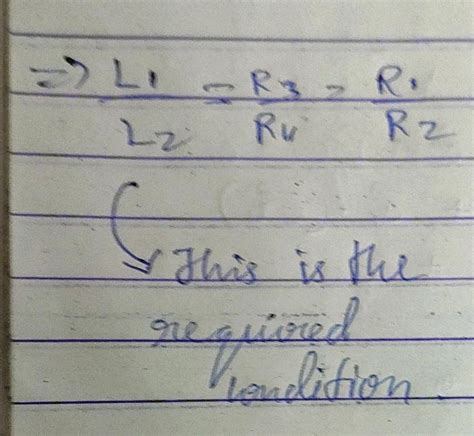 ⇒ L1/L2 = R3/R4 = R1/R2
This is the
required
condition.